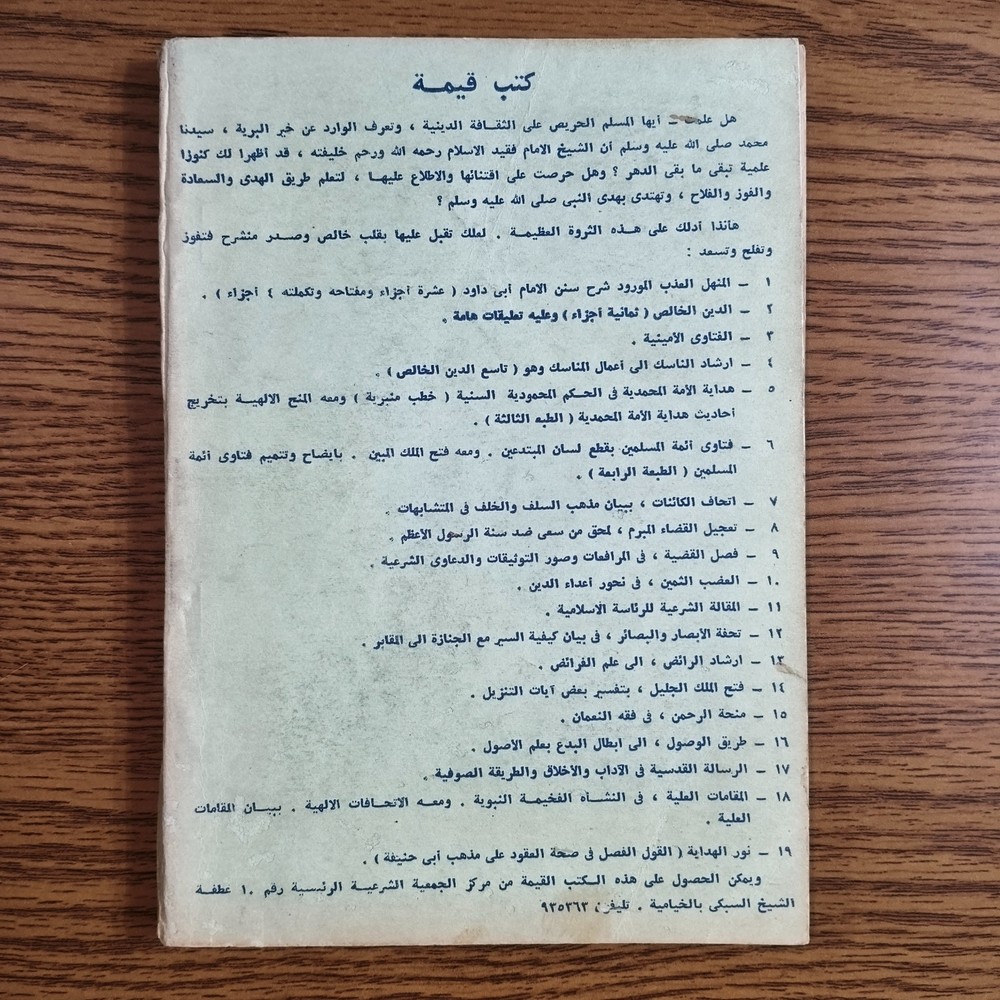 كتب قيمـة
هل علمت ـ أيها المسلم الحريص على الثقـافة الدينية ، وتعرف الوارد عن خير البرية ، سيدنا
محمد صلى الله عليه وسلم أن الشيخ الامام فقيد الاسلام رحمه الله ورحم خليفته ، قد أظهرا لك كنوزا
علمية تبقى ما بقى الدهر ؟ وهل حرصت على اقتنائها والاطلاع عليهـا ، لتعلم طريق الهدى والسعادة
والفوز والفلاح ، وتهتدى بهدى النبى صلى الله عليه وسلم ؟
هأنذا أدلك على هـذه الثروة العظيمـة . لعلك تقبل عليها بقلب خالص وصـدر منشرح فتفوز
وتفلح وتسعد :
١ ـ المنهل العذب المورود شرح سنن الامام أبى داود ( عشرة أجزاء ومفتاحه وتكملته ٤ أجزاء ) .
٢ ـ الدين الخالص ( ثمانية أجزاء ) وعليه تعليقات هامة .
٣ ـ الفتاوى الأمينية .
٤ ـ ارشاد الناسك الى أعمال المناسك وهو ( تاسع الدين الخالص ) .
٥ ـ هداية الأمة المحمدية فى الحـكم المحمودية السنية ( خطب منبرية ) ومعه المنح الالهيـة بتخريج
أحاديث هداية الأمة المحمدية ( الطبعه الثالثة ) .
٦ ـ فتاوى أئمة المسلمين بقطع لسان المبتدعين . ومعه فتح الملك المبين . بايضاح وتتميم فتاوى أئمة
المسلمين ( الطبعة الرابعة ) .
٧ ـ اتحاف الكائنات ، ببيان مذهب السلف والخلف فى المتشابهات .
٨ ـ تعجيل القضاء المبرم ، لمحق من سعى ضد سنة الرسول الأعظم .
٩ ـ فصل القضية ، فى المرافعات وصور التوثيقات والدعاوى الشرعية .
١٠ ـ العضب الثمين ، فى نحور أعداء الدين .
١١ ـ المقالة الشرعية للرئاسة الاسلامية .
١٢ ـ تحفة الأبصار والبصائر ، فى بيان كيفية السير مع الجنازة الى المقابر .
١٣ ـ ارشاد الرائض ، الى علم الفرائض .
١٤ ـ فتح الملك الجليل ، بتفسير بعض آيات التنزيل .
١٥ ـ منحة الرحمن ، فى فقه النعمان .
١٦ ـ طريق الوصول ، الى ابطال البدع بعلم الأصول .
١٧ ـ الرسالة القدسية فى الآداب والأخلاق والطريقة الصوفية .
١٨ ـ المقامات العلية ، فى النشـأه الفخيمـة النبوية . ومعـه الاتحـافات الالهية . ببيـان المقامات
العلية .
١٩ ـ نور الهداية ( القول الفصل فى صحة العقود على مذهب أبى حنيفة ) .
ويمكن الحصول على هذه الـكتب القيمة من مركز الجمعية الشرعيـة الرئيسية رقم ١٠ عطفـة
الشيخ السبكى بالخيامية . تليفون ٩٣٥٣٦٣